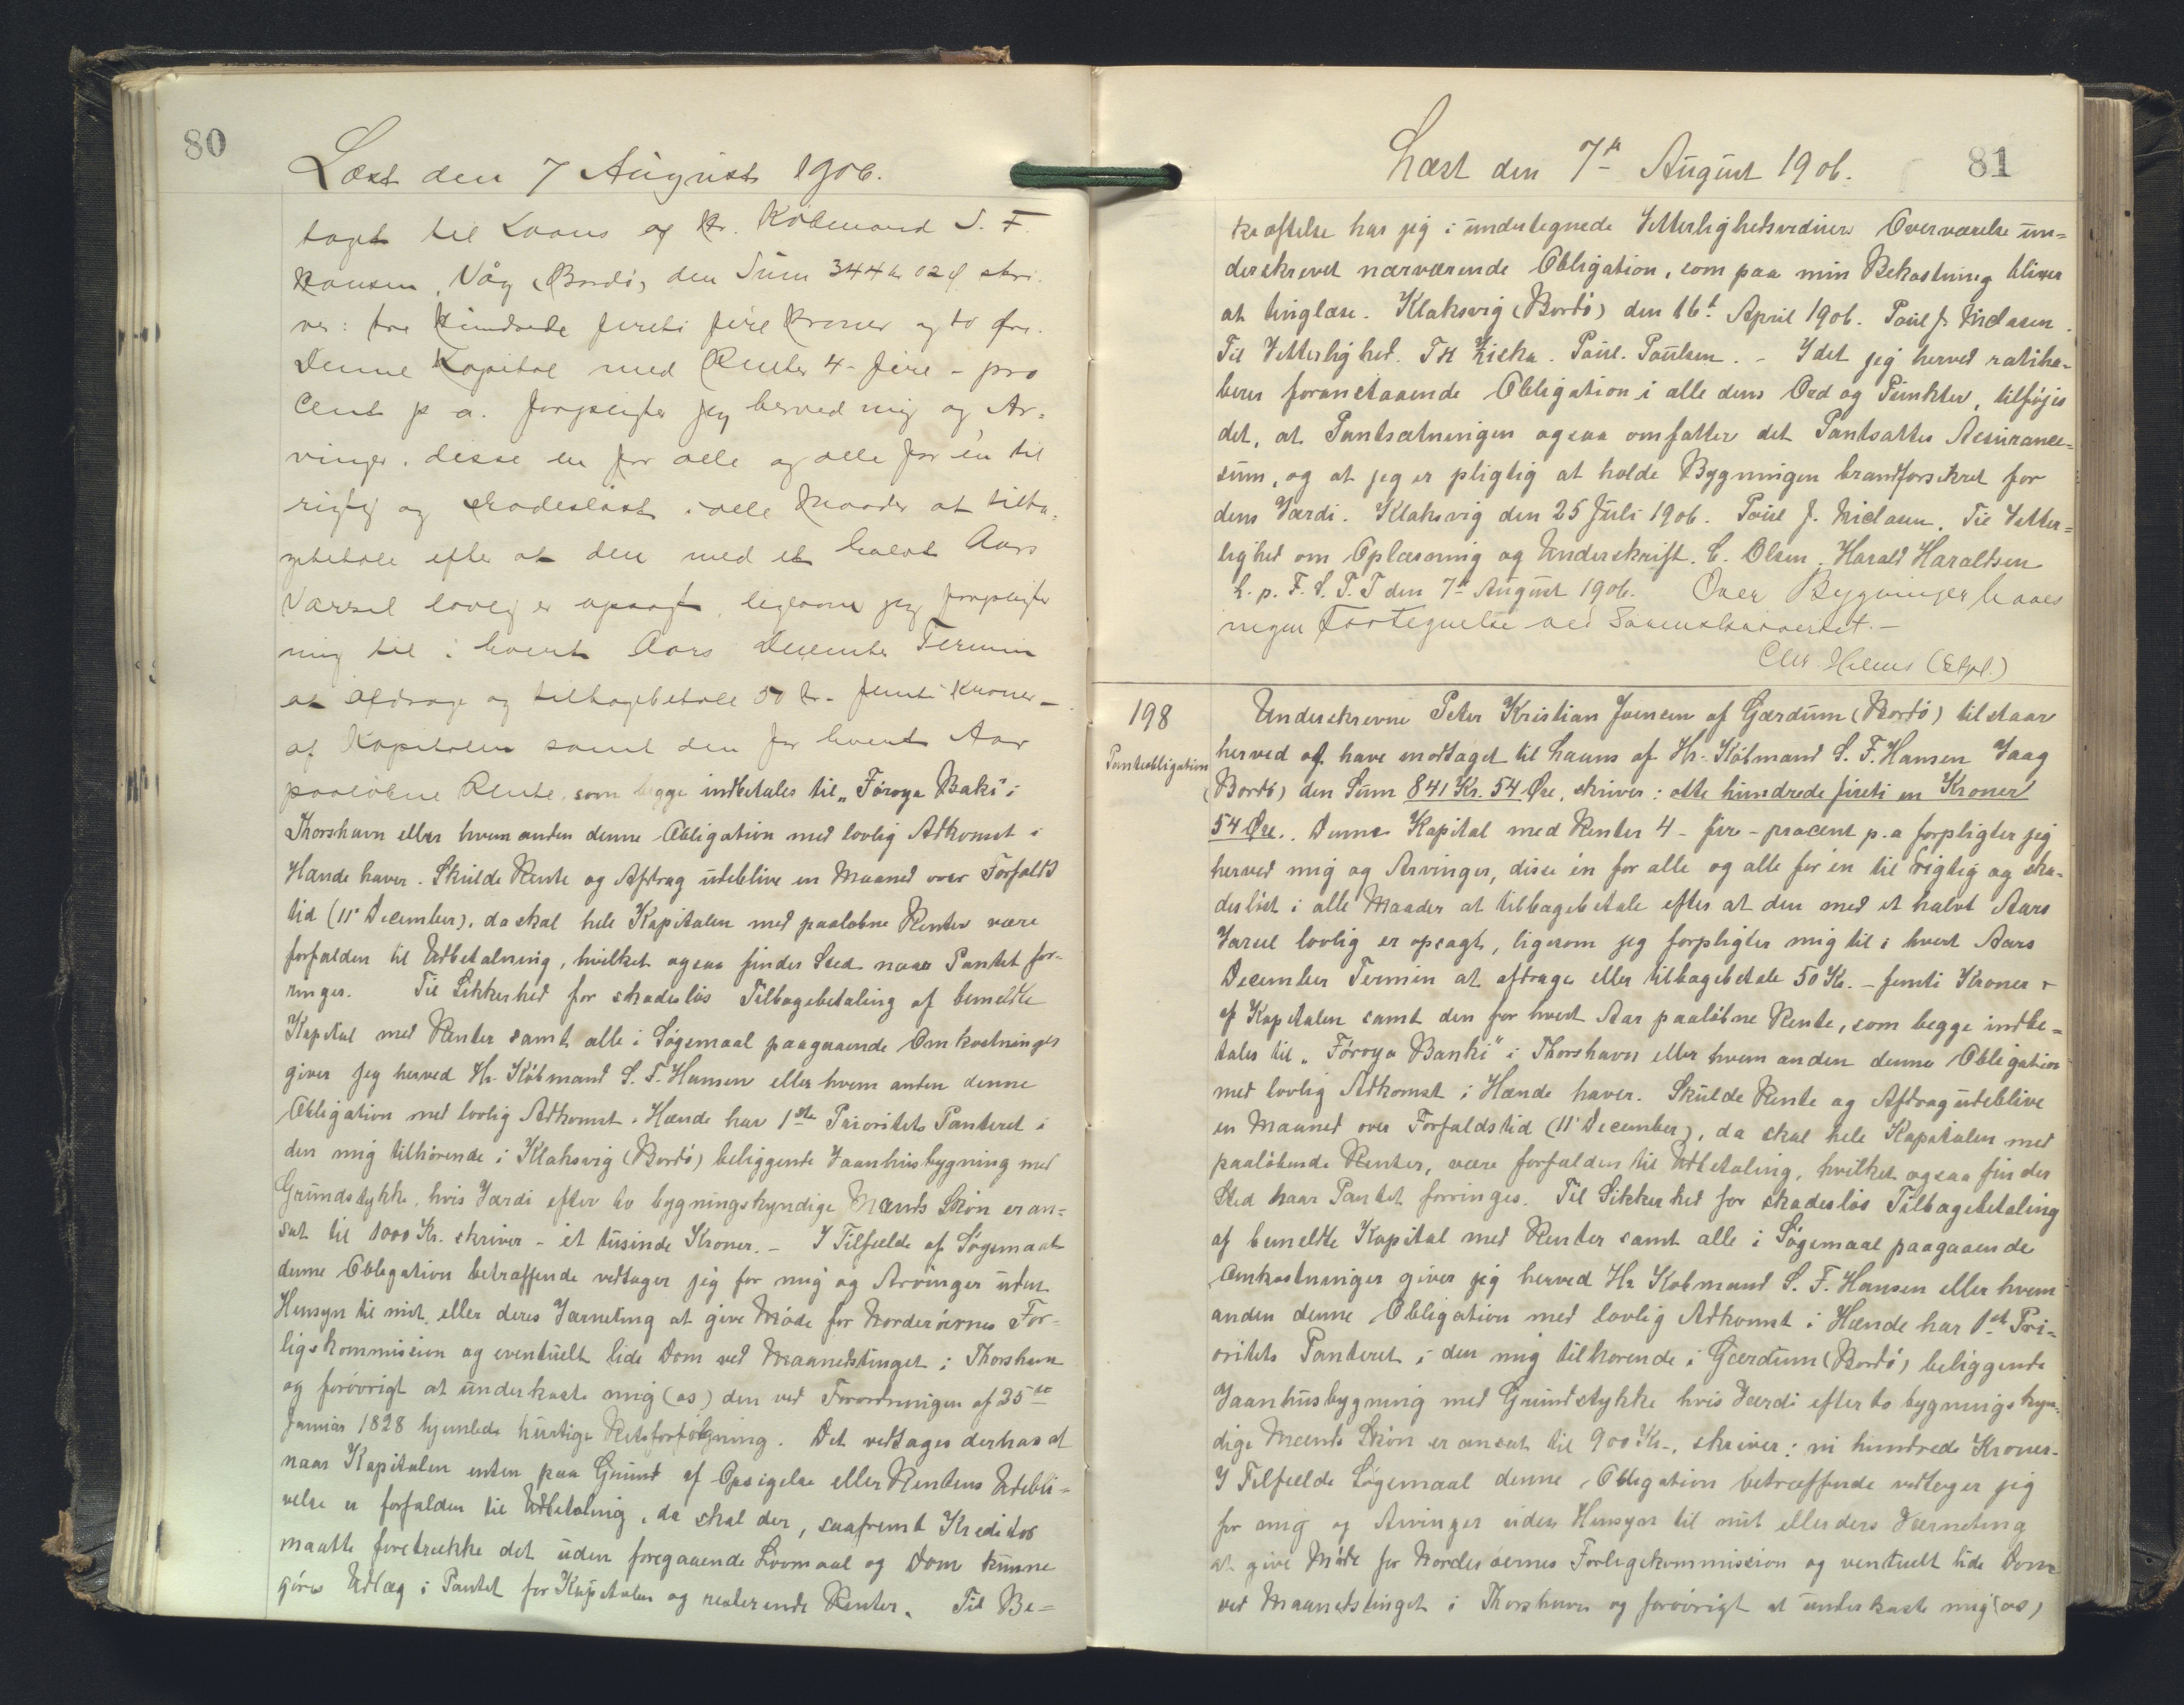 80
Læst den 7 August 1906.
taget til Laans af Hr. Købmand S. F.
Hansen, Våg (Bordö) den Sum 344 Kr 02 Ø. skri-
ver: tre Hundrede fireti fire Kroner og to Øre.
Denne Kapital med Renter 4 - fire - pro
Cent p. a. forpligter jeg herved mig og Ar-
vinger, disse en for alle og alle for én til
rigtig og skadesløst i alle Maader at tilba-
gebetale efter at den med et halvt Aars
Varsel lovlig er opsagt, ligesom jeg forpligter
mig til i hvert Aars December Termin
at afdrage og tilbagebetale 50 Kr. - femti Kroner -
af Kapitalen samt den for hvert Aar
paaløbne Rente, som begge indbetales til „Føroya Baki" i
Thorshavn eller hvem anden denne Obligation med lovlig Adkomst i
Hænde haver. Skulde Rente og Afdrag udeblive en Maaned over Forfalds
tid (11' December), da skal hele Kapitalen med paaløbne Renter være
forfalden til Udbetalning, hvilket ogsaa finder Sted naar Pantet for-
ringes. Til Sikkerhed for skadesløs Tilbagebetaling af bemeldte
Kapital med Renter samt alle i Søgemaal paagaaende Omkostninger
giver jeg herved Hr. Købmand S. F. Hansen eller hvem anden denne
Obligation med lovlig Adkomst i Hænde har 1ste Prioritets Panteret i
den mig tilhørende i Klaksvig (Bordö) beliggende Vaanhusbygning med
Grundstykke, hvis Værdi efter to bygningskyndige Mænds Skøn er an-
sat til 1000 Kr. skriver - ét tusinde Kroner. - I Tilfælde af Søgemaal
denne Obligation betræffende vedtager jeg for mig og Arvinger uden
Hensyn til mit eller deres Værneting at give Møde for Norderøernes For-
ligskommission og eventuelt lide Dom ved Maanedstinget i Thorshavn
og forøvrigt at underkaste mig (os) den ved Forordningen af 25de
Januar 1828 hjemlede hurtige Retsforfølgning. Det vedtages derhos at
naar Kapitalen enten paa Grund af Opsigelse eller Rentens Udebli-
velse er forfalden til Udbetaling, da skal der, saafremt Kreditor
maatte foretrække det uden foregaaende Lovmaal og Dom kunne
gøres Udlæg i Pantet for Kapitalen og resterende Renter. Til Be-
81
Læst den 7de August 1906.
kræftelse har jeg i undertegnede Vitterlighedsvidners Overværelse un-
derskrevet nærværende Obligation, som paa min Bekostning bliver
at tinglæse. Klaksvig (Bordö) den 16de April 1906. Poul J. Niclasen.
Til Vitterlighed. T H Ziska. Poul. Poulsen. - Idet jeg herved ratiha-
berer foranstaaende Obligation i alle dens Ord og Punkter, tilføjes
det, at Pantsætningen ogsaa omfatter det Pantsattes Assurance-
sum, og at jeg er pligtig at holde Bygningen brandforsikret for
dens Værdi. Klaksvig den 25 Juli 1906. Poul J. Niclasen. Til Vitter-
lighed om Oplæsning og Underskrift. C. Olsen. Harald Haraldsen
L. p. F. S. P. T den 7de August 1906. Over Bygninger haves
ingen Fortegnelse ved
198
Pantobligation
Underskrevne Peter Kristian Joensen af Gærdum (Bordö) tilstaar
herved at have modtaget til Laans af Hr. Købmand S. F. Hansen Vaag
(Bordö) den Sum 841 Kr. 54 Øre, skriver: otte hundrede fireti en Kroner
54 Øre. Denne Kapital med Renter 4 - fire - procent p. a forpligter jeg
herved mig og Arvinger, disse én for alle og alle for én til rigtig og ska-
desløst i alle Maader at tilbagebetale efter at den med et halvt Aars
Varsel lovlig er opsagt, ligesom jeg forpligter mig til i hvert Aars
December Termin at afdrage eller tilbagebetale 50 Kr. - femti Kroner -
af Kapitalen samt den for hvert Aar paaløbne Rente, som begge indbe-
tales til „Føroya Banki" i Thorshavn eller hvem anden denne Obligation
med lovlig Adkomst i Hænde haver. Skulde Rente og Afdrag udeblive
en Maaned over Forfaldstid (11' December), da skal hele Kapitalen med
paaløbende Renter, være forfalden til Udbetaling, hvilket ogsaa finder
Sted naar Pantet forringes. Til Sikkerhed for skadesløs Tilbagebetaling
af bemeldte Kapital med Renter samt alle i Søgemaal paagaaende
Omkostninger giver jeg herved Hr Købmand S. F. Hansen eller hvem
anden denne Obligation med lovlig Adkomst i Hænde har 1ste Pri-
oritets Panteret i den mig tilhørende i Gærdum (Bordö) beliggende
Vaanhusbygning med Grundstykke hvis Værdi efter to bygningskyn-
dige Mænds Skøn er ansat til 900 Kr., skriver: ni hundrede Kroner.
I Tilfælde Søgemaal denne Obligation betræffende vedtager jeg
for mig og Arvinger uden Hensyn til mit eller ders Værneting
at give Møde for Norderøernes Forligskommission og ventuelt lide Dom
ved Maanedstinget i Thorshavn og forøvrigt at underkaste mig (os)